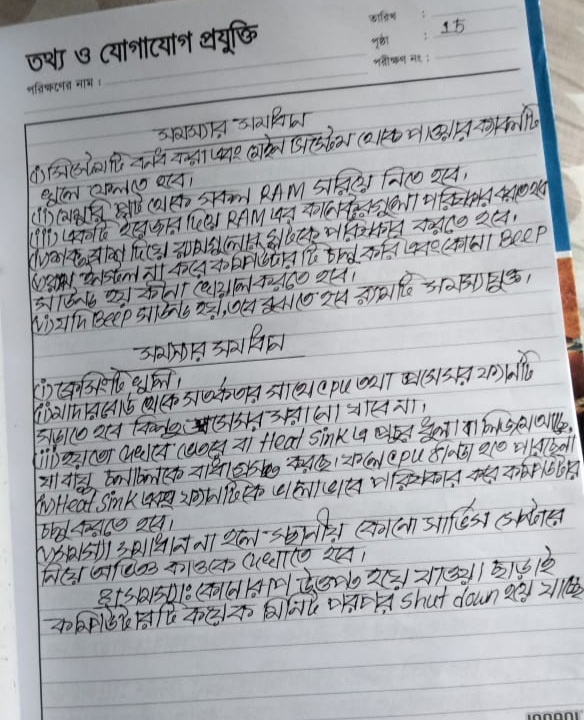 তথ্য ও যোগাযোগ প্রযুক্তি
তারিখ :
পৃষ্ঠা : 15
পরীক্ষণ নং :
পরিক্ষণের নাম :
সমস্যার সমাধান
(i) সিস্টেমটি বন্ধ করা এবং মেইন সিস্টেম থেকে পাওয়ার ক্যাবলটি
খুলে ফেলতে হবে।
(ii) মেমরি স্লট থেকে সকল RAM সরিয়ে নিতে হবে।
(iii) একটি ইরেজার দিয়ে RAM এর কানেক্টরগুলো পরিষ্কার করতে হবে
ব্রাশ দিয়ে র‍্যামগুলোর স্লটকে পরিষ্কার করতে হবে।
(v) র‍্যাম ইনস্টল না করে কম্পিউটারটি চালু করি এবং কোনো Beep
সাউন্ড হয় কীনা খেয়াল করতে হবে।
(vi) যদি Beep সাউন্ড হয়, তবে বুঝতে হবে র‍্যামটি সমস্যাযুক্ত।
সমস্যার সমাধান
(i) কেসিংটি খুলি।
(ii) মাদারবোর্ড থেকে সতর্কতার সাথে CPU তথা প্রসেসর ফ্যানটি
সড়াতে হবে কিন্তু প্রসেসর সরানো যাবে না।
(iii) হয়তো দেখবে ভেতর বা Heat Sink এ প্রচুর ধুলা বা জমে আছে,
যা বায়ু চলাচলকে বাধাগ্রস্ত করছে। ফলে CPU ঠান্ডা হতে পারছেনা
(iv) Heat Sink এবং ফ্যানটিকে ভালোভাবে পরিষ্কার করে কম্পিউটার
চালু করতে হবে।
(v) সমস্যা সমাধান না হলে স্থানীয় কোনো সার্ভিস সেন্টারে
নিয়ে অভিজ্ঞ কাওকে দেখাতে হবে।
সমস্যা: কোনোরূপ উত্তপ্ত হয়ে যাওয়া ছাড়াই
কম্পিউটারটি কয়েক মিনিট পরপর shut down হয়ে যাচ্ছে